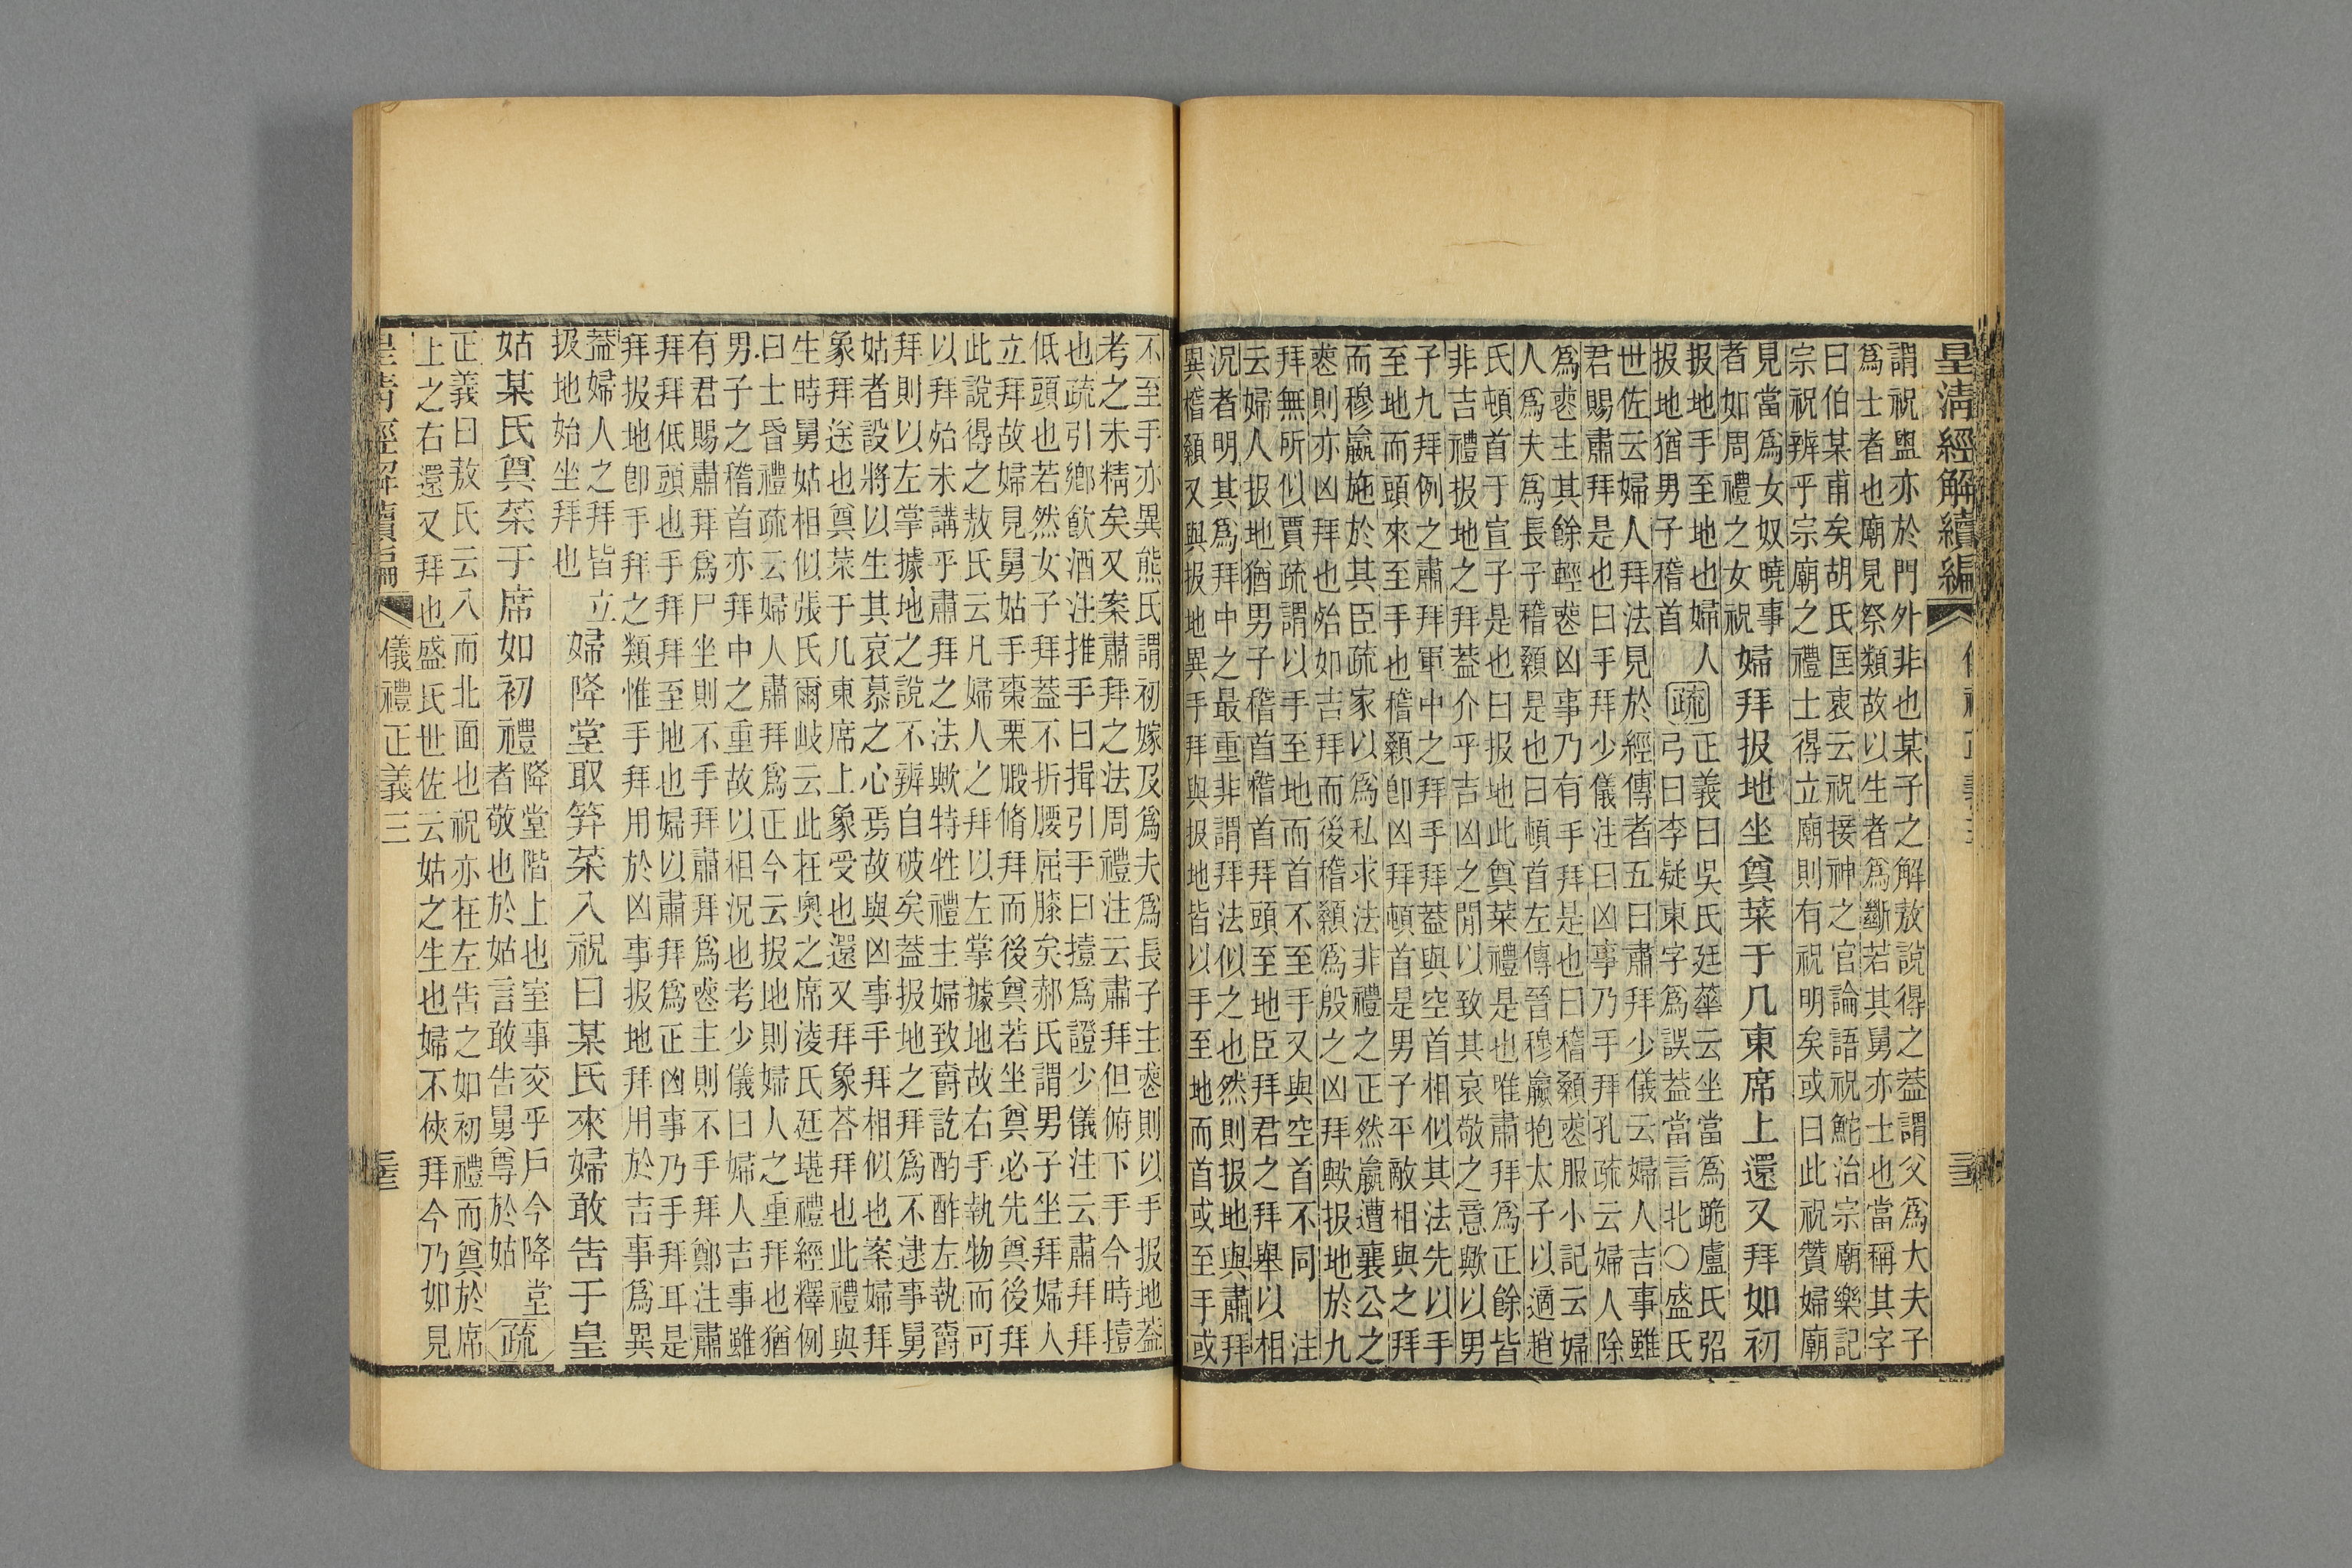 皇淸經解續編
謂祝盥亦於門外非也某子之解敖說得之蓋謂父爲大夫子
爲士者也廟見祭類故以生者爲斷若其舅亦士也當稱其字
曰伯某甫矣胡氏匡衷云祝接神之官論語祝鮀治宗廟樂記
宗祝辨乎宗廟之禮士得立廟則有祝明矣或曰此祝贊婦廟
見當爲女奴曉事
者如周禮之女祝
婦拜扱地坐奠菜于几東席上還又拜如初
扱地手至地也婦人
扱地猶男子稽首
疏
正義曰吳氏廷華云坐當爲跪盧氏弨
弓曰李疑東字爲誤蓋當言北○盛氏
世佐云婦人拜法見於經傳者五曰肅拜少儀云婦人吉事雖
君賜肅拜是也曰手拜少儀注曰凶事乃手拜孔疏云婦人除
爲喪主其餘輕喪凶事乃有手拜是也曰稽顙喪服小記云婦
人爲夫爲長子稽顙是也曰頓首左傳晉穆嬴抱太子以適趙
氏頓首于宣子是也曰扱地此奠菜禮是也唯肅拜爲正餘皆
非吉禮扱地之拜蓋介乎吉凶之閒以致其哀敬之意歟以男
子九拜例之肅拜軍中之拜手拜蓋與空首相似其法先以手
至地而頭來至手也稽顙卽凶拜頓首是男子平敵相與之拜
而穆嬴施於其臣疏家以爲私求法非禮之正然嬴遭襄公之
喪則亦凶拜也殆如吉拜而後稽顙爲殷之凶拜歟扱地於九
拜無所似賈疏謂以手至地而首不至手又與空首不同 注
云婦人扱地猶男子稽首稽首拜頭至地臣拜君之拜舉以相
況者明其爲拜中之最重非謂拜法似之也然則扱地與肅拜
異稽顙又與扱地異手拜與扱地皆以手至地而首或至手或
不至手亦異熊氏謂初嫁及爲夫爲長子主喪則以手扱地蓋
考之未精矣又案肅拜之法周禮注云肅拜但俯下手今時撎
也疏引鄉飮酒注推手曰揖引手曰撎爲證少儀注云肅拜拜
低頭也若然女子拜蓋不折腰屈膝矣郝氏謂男子坐拜婦人
立拜故婦見舅姑手棗栗腶脩拜而後奠若坐奠必先奠後拜
此說得之敖氏云凡婦人之拜以左掌據地故右手執物而可
以拜殆未講乎肅拜之法歟特牲禮主婦致爵訖酌酢左執爵
拜則以左掌據地之說不辨自破矣蓋扱地之拜爲不逮事舅
姑者設將以生其哀慕之心焉故與凶事手拜相似也案婦拜
象拜送也奠菜于几東席上象受也還又拜象荅拜也此禮與
生時舅姑相似張氏爾岐云此在奧之席淩氏廷堪禮經釋例
曰士昏禮疏云婦人肅拜爲正今云扱地則婦人之重拜也猶
男子之稽首亦拜中之重故以相況也考少儀曰婦人吉事雖
有君賜肅拜爲尸坐則不手拜肅拜爲喪主則不手拜鄭注肅
拜拜低頭也手拜拜至地也婦以肅拜爲正凶事乃手拜耳是
拜扱地卽手拜之類惟手拜用於凶事扱地拜用於吉事爲異
蓋婦人之拜皆立
扱地始坐拜也
婦降堂取笲菜入祝曰某氏來婦敢告于皇
姑某氏奠菜于席如初禮
降堂階上也室事交乎戶今降堂
者敬也於姑言敢告舅尊於姑
疏
正義曰敖氏云入而北面也祝亦在左告之如初禮而奠於席
上之右還又拜也盛氏世佐云姑之生也婦不俠拜今乃如見
皇淸經解續編 儀禮正義三